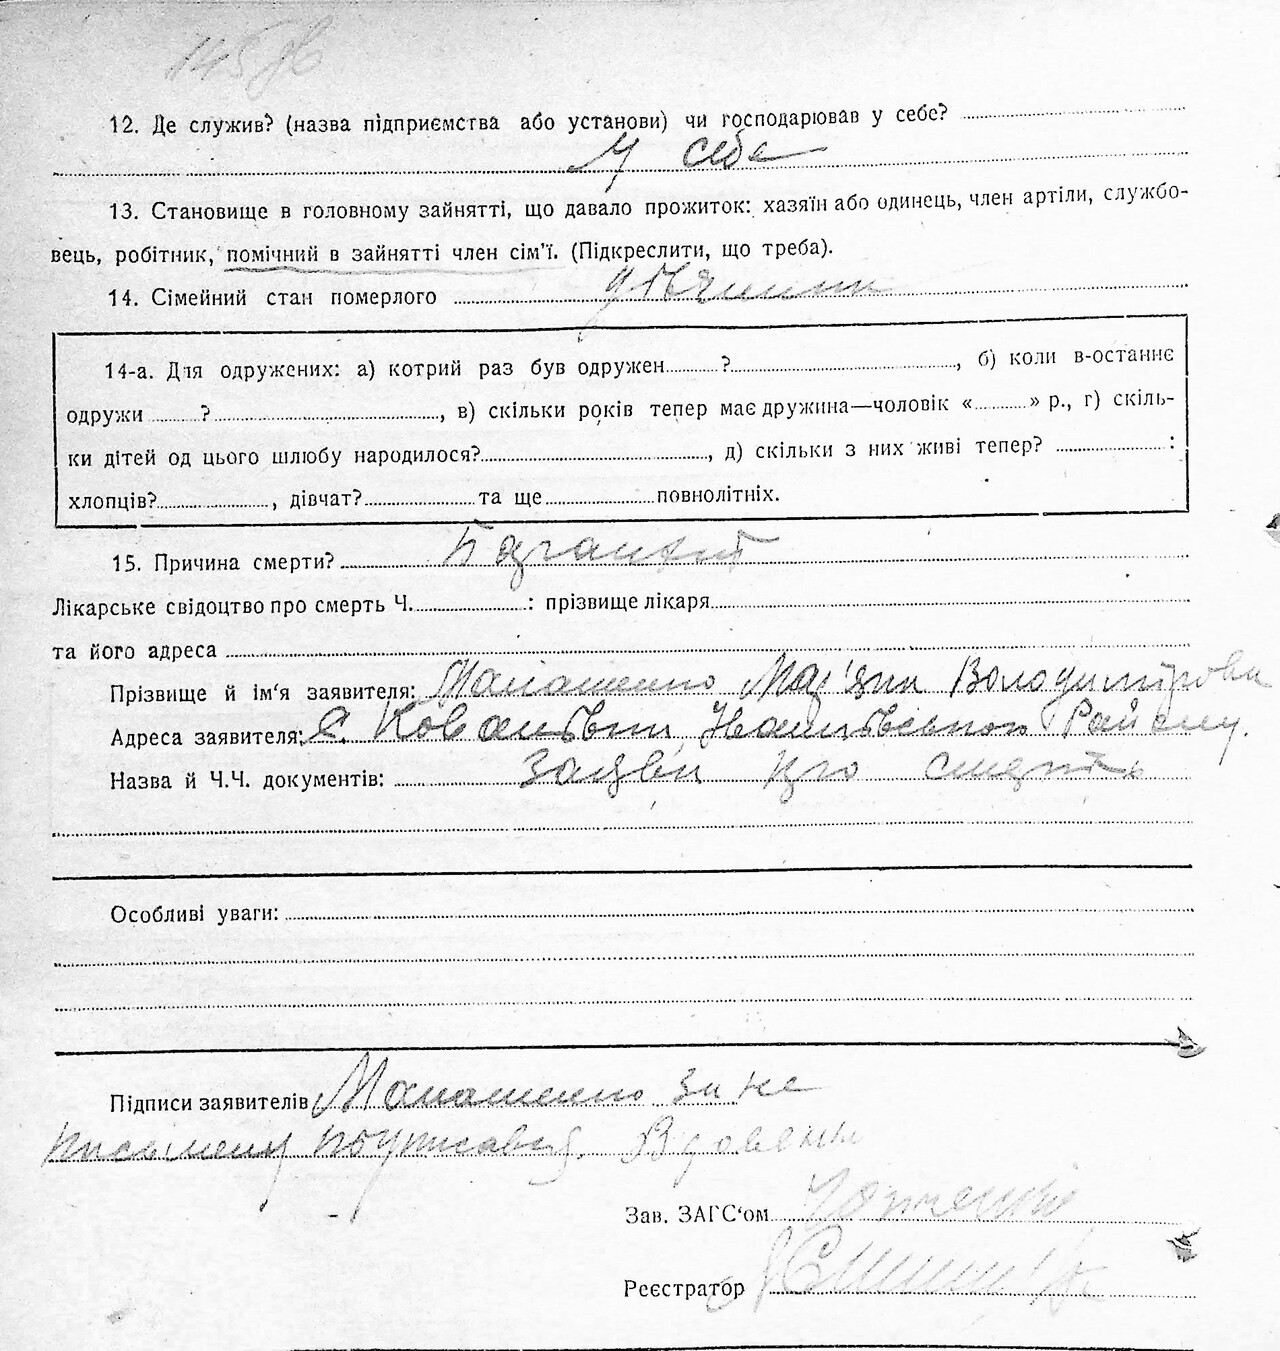 145
12. Де служив? (назва підприємства або установи) чи господарював у себе?
у себе
13. Становище в головному зайнятті, що давало прожиток: хазяїн або одинець, член артіли, службо-
вець, робітник, помічний в зайнятті член сім'ї. (Підкреслити, що треба).
14. Сімейний стан померлого
14-а. Для одружених: а) котрий раз був одружен ? , б) коли в-останнє
одружи ? , в) скільки років тепер має дружина—чоловік « » р., г) скіль-
ки дітей од цього шлюбу народилося? , д) скільки з них живі тепер? :
хлопців? , дівчат? та ще повнолітніх.
15. Причина смерти?
Лікарське свідоцтво про смерть Ч. : прізвище лікаря
та його адреса
Прізвище й ім'я заявителя: Мар'яни Володимірови
Адреса заявителя: с. Ковалівки Району.
Назва й Ч.Ч. документів: Заяви про смерть
Особливі уваги:
Підписи заявителів за не
письмену
Зав. ЗАГС'ом
Реєстратор